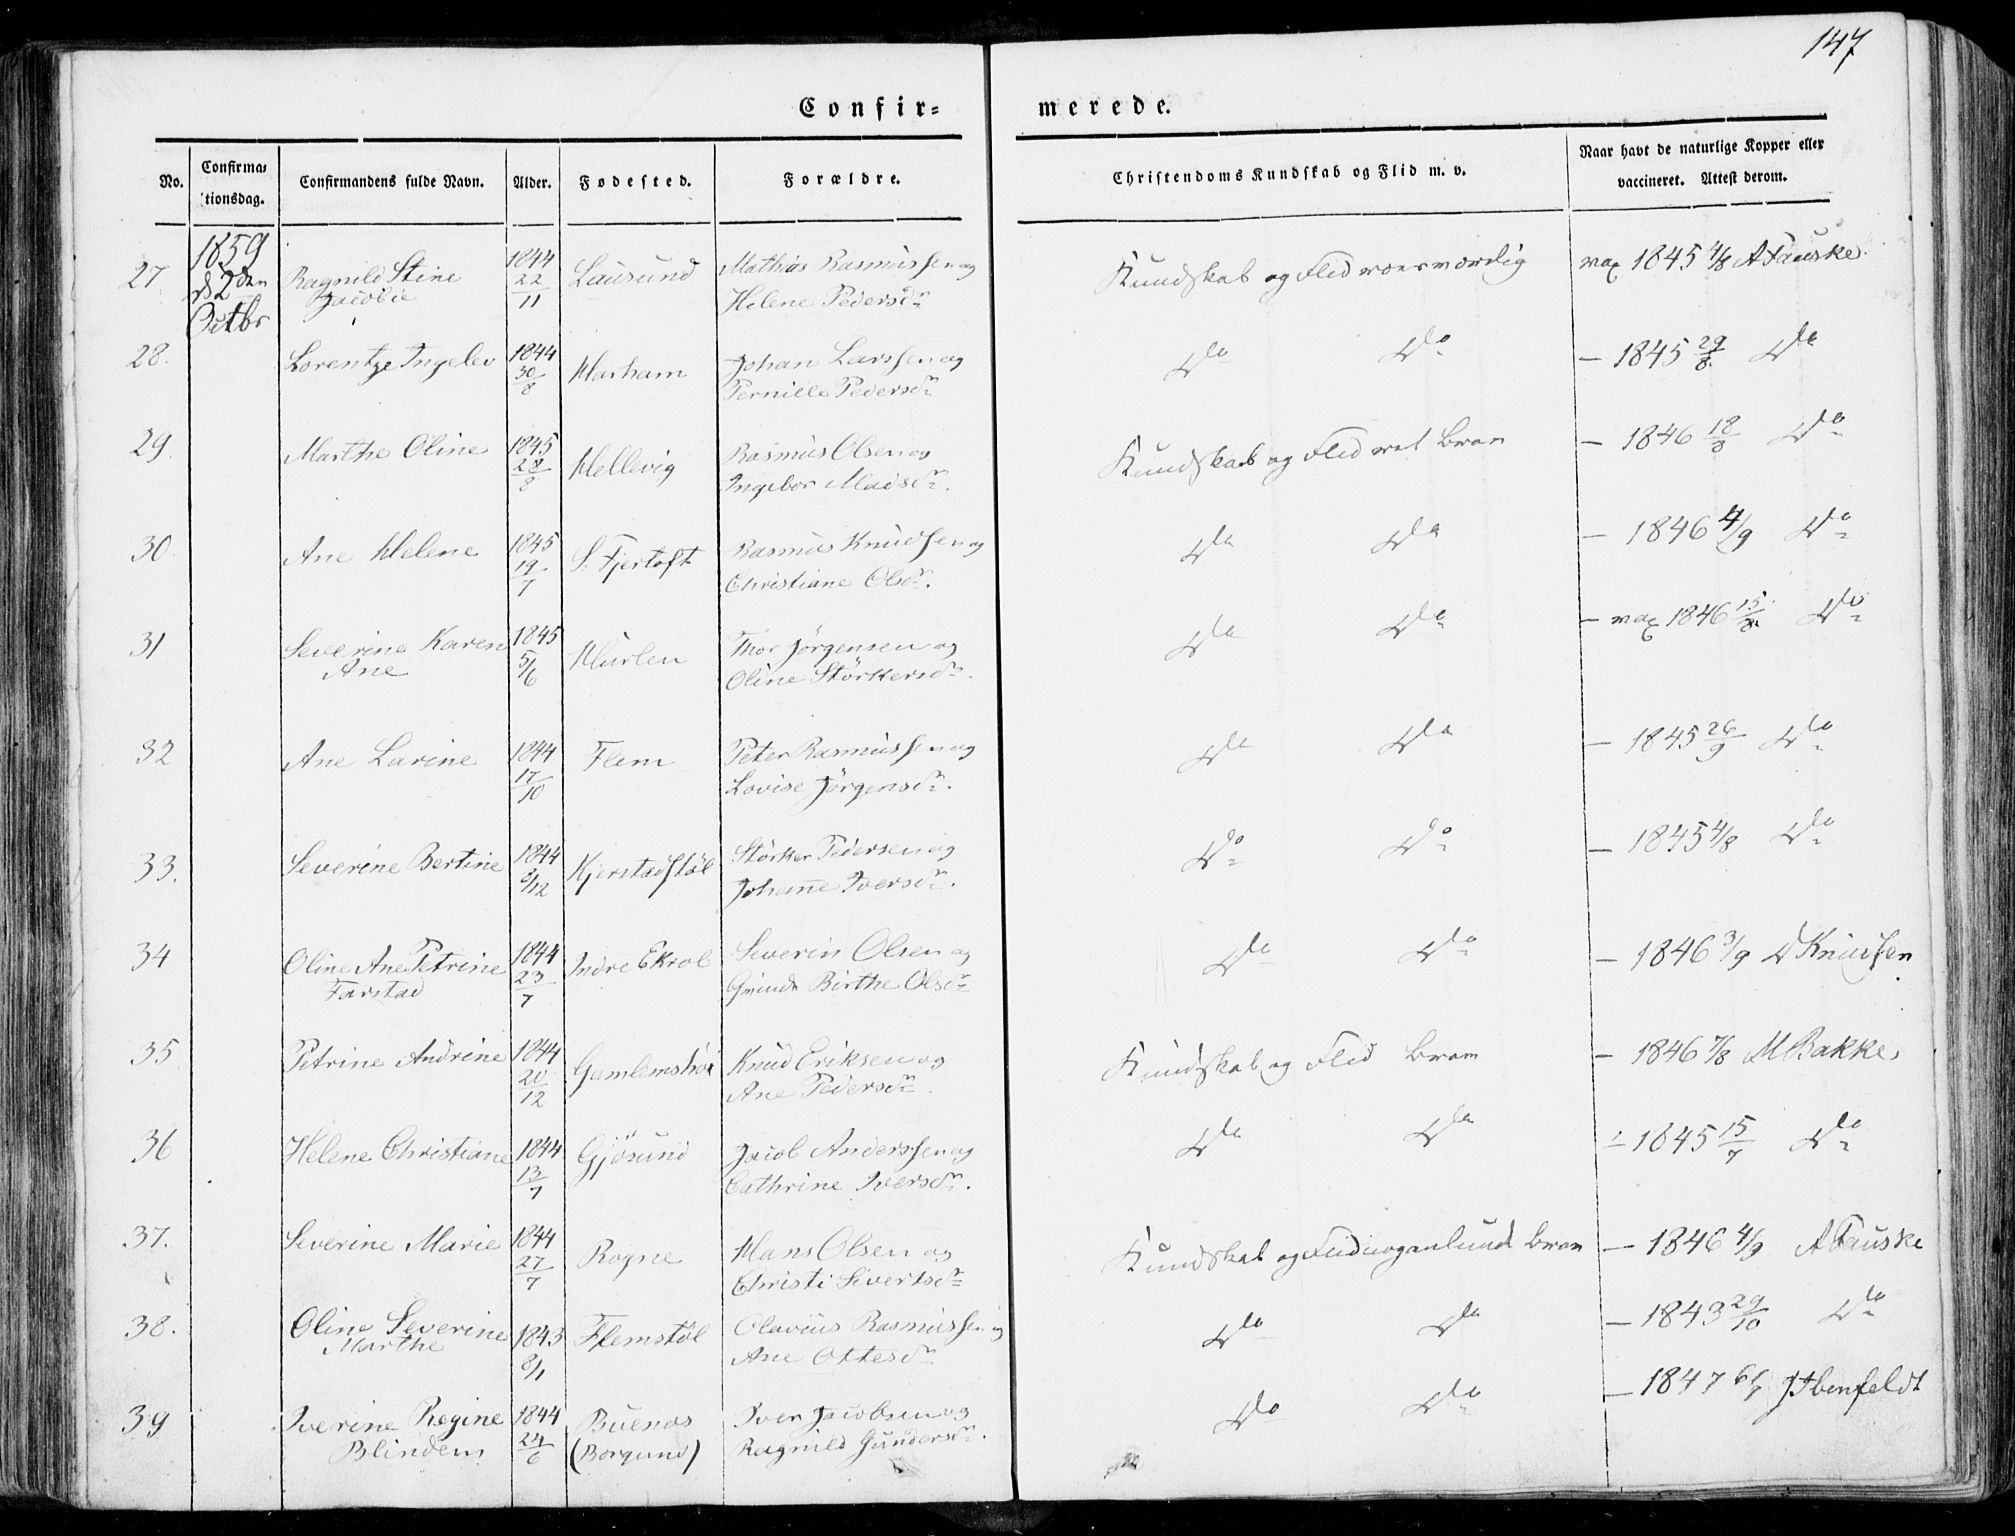 147
Confir-
merede.
No.
Confirma-
tionsdag.
Confirmandens fulde Navn.
Alder.
Fødested.
Forældre.
Christendoms Kundskab og Flid m. v.
Naar havt de naturlige Kopper eller
vaccineret. Attest derom.
27. 1859 Ragnild Stine 1844 Lausund Mathias Rasmussen og Kundskab og Flid roesværdig vax 1845 4/8 A Fauske.
d 2den Jacobie 22/11 Helene Pedersdr
Octbr
28. Lorentze Ingelev 1844 Harham Johan Larssen og Do Do — 1845 29/8 Do
30/8 Pernille Pedersdr
29. Marthe Oline 1845 Hellevig Rasmus Olsen og Kundskab og Flid ret brav — 1846 18/8 Do
28/8 Ingebor Madsdr.
30. Ane Helene 1845 S. Fjertoft Rasmus Knudsen og Do Do — 1846 4/9 Do
19/7 Christiane Olsdr.
31 Severine Karen 1845 Hurlen Thor Jörgensen og Do Do — vax 1846 15/8 Do
Ane 5/6 Oline Störkersdr.
32 Ane Larine 1844 Flem Peter Rasmussen og Do Do — 1845 26/9 Do
17/10 Lovise Jörgensdr.
33. Severine Bertine 1844 Kjerstadstöl Störker Pedersen og Do Do — 1845 4/8 Do
8/12 Johanne Iversdr.
34 Oline Ane Petrine 1844 Indre Ekrol Severin Olsen og Do Do — 1846 3/9 D Knudsen
Farstad 23/7 Birthe Olsdr
35 Petrine Andrine 1844 Gamlemshöi Knud Eriksen og Kundskab og Flid brav — 1846 7/8 M Bakke
20/12 Ane Pedersdr.
36 Helene Christiane 1844 Gjösund Jacob Anderssen og Do Do — 1845 15/7 Do
13/7 Cathrine Iversdr.
37. Severine Marie 1844 Rogne Hans Olsen og Kundskab og Flid nogenlunde brav — 1846 4/9 A Fauske
27/7 Christi Sivertsdr
38. Oline Severine 1843 Flemstöl Olavius Rasmussen og Do Do — 1843 29/10 Do
Marthe 8/1 Ane Ottesdr
39 Iverine Regine 1844 Buenæs Iver Jacobsen og Do Do — 1847 6/7 J Ibenfeldt
Blindem 24/6 (Borgund) Ragnild Gundersdr.